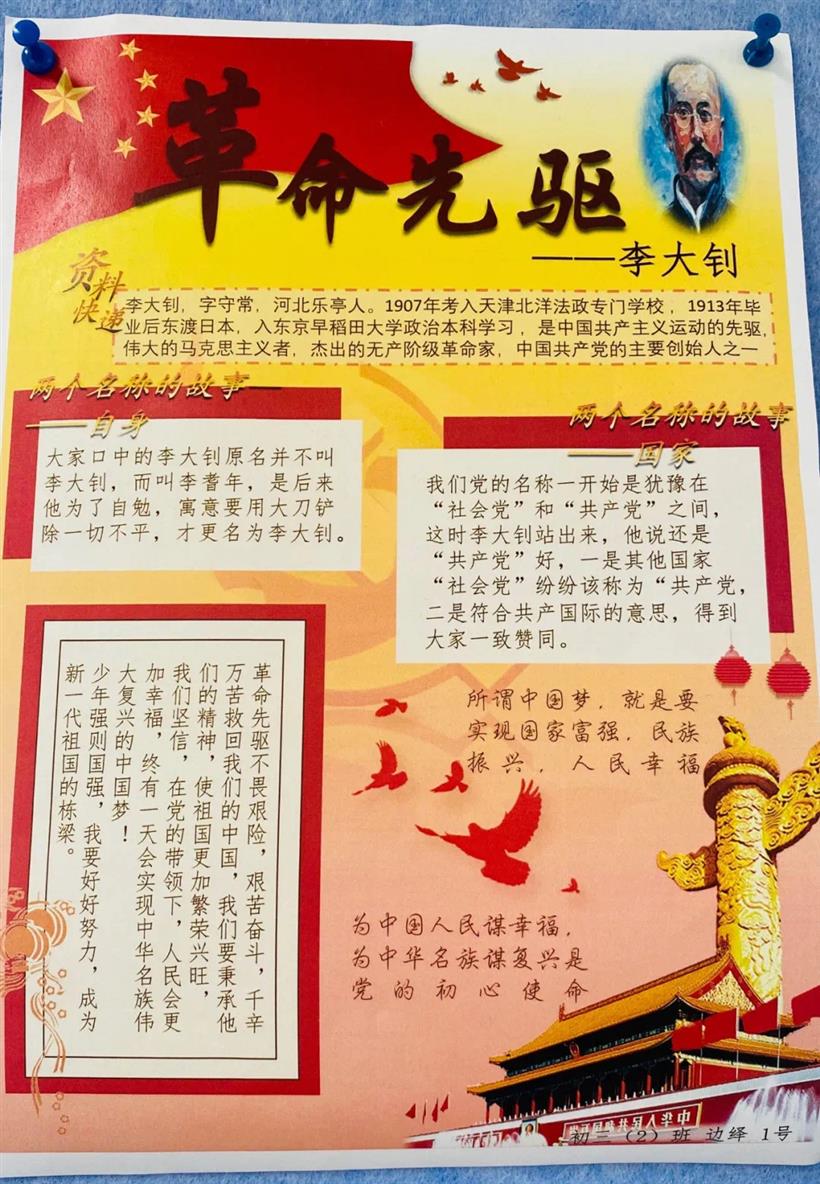 革命先驱
——李大钊
资料
快递
李大钊，字守常，河北乐亭人。1907年考入天津北洋法政专门学校，1913年毕
业后东渡日本，入东京早稻田大学政治本科学习，是中国共产主义运动的先驱，
伟大的马克思主义者，杰出的无产阶级革命家，中国共产党的主要创始人之一
两个名称的故事
——自身
大家口中的李大钊原名并不叫
李大钊，而叫李耆年，是后来
他为了自勉，寓意要用大刀铲
除一切不平，才更名为李大钊。
两个名称的故事
——国家
我们党的名称一开始是犹豫在
“社会党”和“共产党”之间，
这时李大钊站出来，他说还是
“共产党”好，一是其他国家
“社会党”纷纷该称为“共产党，
二是符合共产国际的意思，得到
大家一致赞同。
革命先驱不畏艰险，艰苦奋斗，千辛
万苦救回我们的中国，我们要秉承他
们的精神，使祖国更加繁荣兴旺，
我们坚信，在党的带领下，人民会更
加幸福，终有一天会实现中华名族伟
大复兴的中国梦！
少年强则国强，我要好好努力，成为
新一代祖国的栋梁。
所谓中国梦，就是要
实现国家富强，民族
振兴，人民幸福
为中国人民谋幸福，
为中华名族谋复兴是
党的初心使命
初三（2）班 边绎 1号